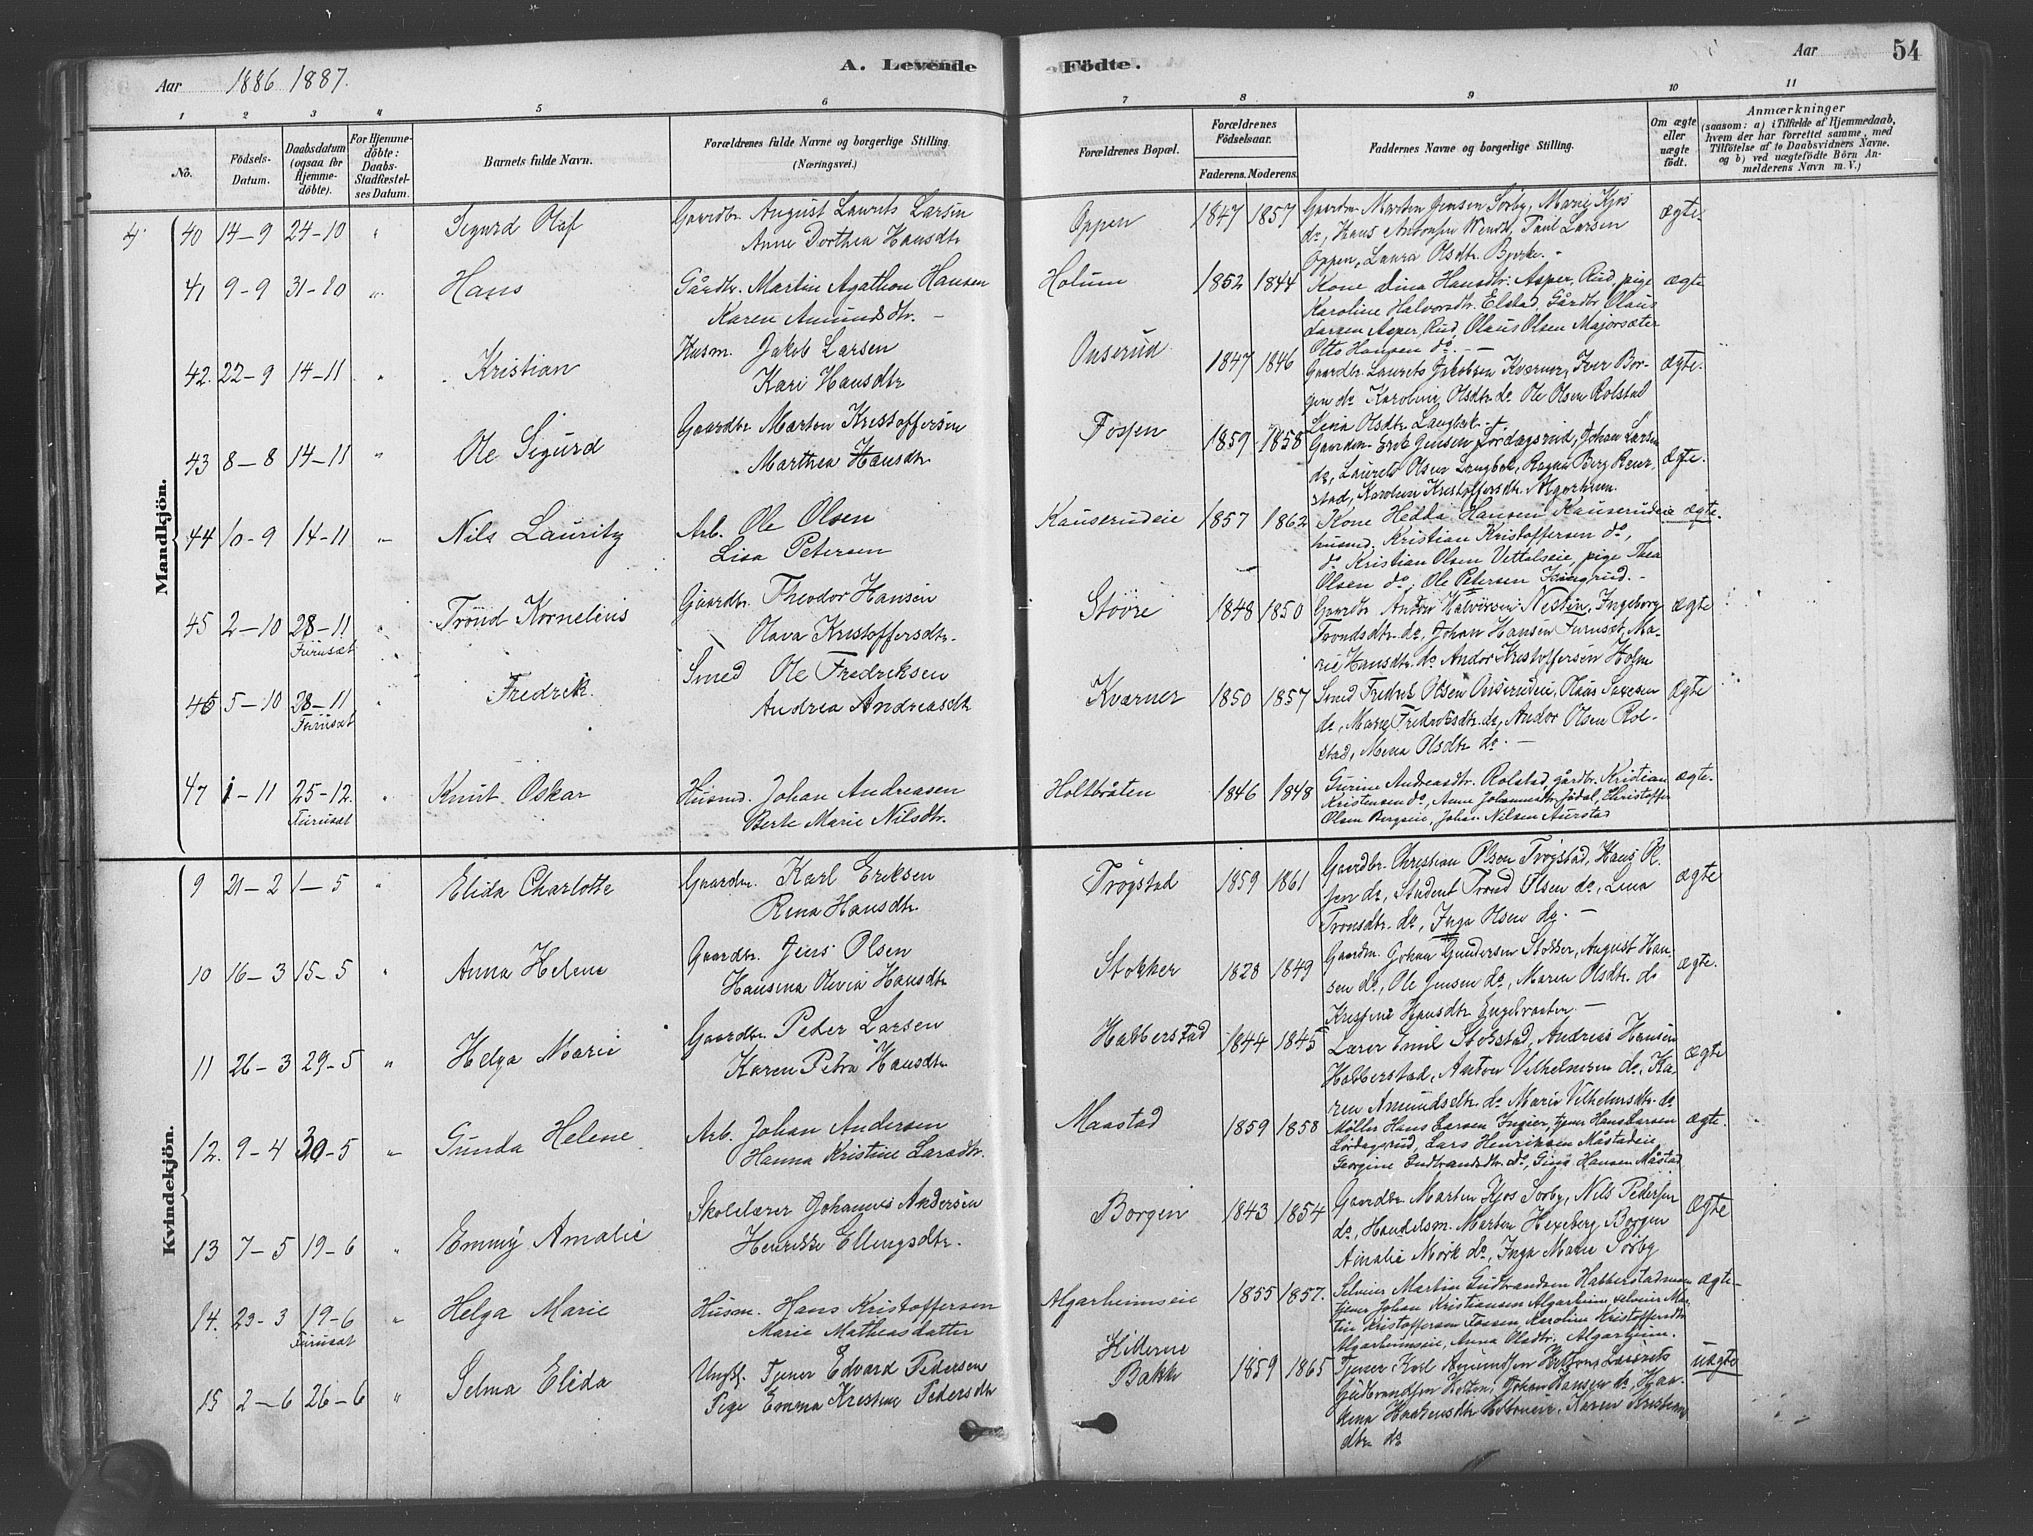 Aar 1886 1887. A. Levende Födte. Aar 54
1 2 3 4 5 6 7 8 9 10 11
No. Födsels-Datum. Daabsdatum (ogsaa for Hjemme-döbte). For Hjemme-döbte: Daabs-Stadfæstel-ses Datum. Barnets fulde Navn. Forældrenes fulde Navne og borgerlige Stilling. (Næringsvei.) Forældrenes Bopæl. Forældrenes Födselsaar. Faderens. Moderens. Faddernes Navne og borgerlige Stilling. Om ægte eller uægte födt. Anmærkninger (saasom: a) i Tilfælde af Hjemmedaab, hvem der har forrettet samme, med Tilföielse af to Daabsvidners Navne. og b) ved uægtefödte Börn An-melderens Navn m. V.)
Mandkjön.
40 14-9 24-10 " Sigurd Olaf Gaardbr. August Laurits Larsen Oppen 1847 1857 Gaardm. Marten Jensen Sørby, Marie Kjos ægte.
Anne Dorthea Hansdtr do, Hans Antonsen Wendt, Paul Larsen
Oppen, Laura Olsdtr. Bjerke. -
41 9-9 31-10 " Hans Gårdbr. Martin Agathon Hansen Holum 1852 1844 Kone Lina Hansdtr. Asper, Rud, pige ægte
Karen Amundsdtr. - Karoline Halvorsdtr. Elstad, Gårdbr. Olaus
Larsen Asper, Rud, Olaus Olsen Majorsæter
Otto Hansen do. -
42. 22-9 14-11 " Kristian Husm. Jakob Larsen Onserud 1847 1846 Gaardbr. Laurets Jakobsen Kværner, Iver Bor- ægte.
Kari Hansdtr gen do Karoline Olsdtr. do Ole Olsen Rolstad
Lina Olsdtr. Langbak. -
43 8-8 14-11 " Ole Sigurd Gaardbr Marten Kristoffersen Fossen 1859 1858 Gaardm. Erik Jensen Lørdagsrud, Johan Larsen ægte.
Marthea Hansdtr do, Laurets Olsen Langbak, Berg
stad, Karoline Kristoffersdtr. Algarheim.
44 10-9 14-11 " Nils Lauritz Arb. Ole Olsen Kauserudeie 1857 1862 Kone Hedda Hansen Kauserudeie ægte.
Lisa Petersen husmd, Kristian Kristoffersen do,
do Kristian Olsen Vettalseie, pige Thea
Olsen do, Ole Petersen Isingrud. -
45 2-10 28-11 " Trond Kornelius Gaardbr. Theodor Hansen Stovre 1848 1850 Gaardbr Anton Halvorsen Nesten, Ingeborg ægte
Furusæt Olava Kristoffersdtr. Trondsdtr. do, Johan Hansen Furuset, Ma-
rie Hansdtr. do Andor Kristoffersen Holm
46 5-10 28-11 " Fredrik Smed Ole Fredriksen Kværner 1850 1857 Smed Fredrik Olsen Onserudeie, Olaus ægte
Furusæt Andrea Andreasdtr do, Marie Fredriksdtr. do, Andor Olsen Rol-
stad, Mina Olsdtr do. -
47 1-11 25-12. " Knut Oskar Husmd. Johan Andreasen Holtbråten 1846 1848 Gurine Andreasdtr. Rolstad, gårdbr. Kristian ægte.
Furusæt Berte Marie Nilsdtr. Kristensen do, Anne Johannesdtr. Jødal, Christoffer
Olsen Bergseie, Johan Nilsen Aurstad
Kvindekjön.
9 21-2 1-5 " Elida Charlotte Gaardbr. Karl Eriksen Trøgstad 1859 1861 Gaardbr. Christian Olsen Trøgstad, Hans Ol- ægte
Rena Hansdtr. sen do, Student Trond Olsen do, Lina
Tronsdtr. do, Inga Olsen do. -
10 16-3 15-5 " Anna Helene Gaardbr. Jens Olsen Stokker 1828 1849 Gaardm. Johan Gundersen Stokker, August Han- ægte.
Hansina Olivia Hansdtr sen do, Ole Jensen do, Maren Olsdtr. do
Kristine Hansdtr. -
11 26-3 29-5 " Helga Marie Gaardbr. Peder Larsen Habberstad 1844 1845 Lærer Emil Stokstad, Andreas Hansen ægte
Karen Petra Hansdtr Habberstad, Anton Vilhelmsen do, Ka-
ren Amundsdtr. do Marie Vilhelmsdtr. do
12. 9-4 30-5 " Gunda Helene Arb. Johan Andersen Maastad 1859 1858 Møller Hans Larsen Ingier, tjener Hans Larsen ægte.
Hanna Kristine Larsdtr. Lørdagsrud, Lars Henriksen Måstadeie,
Georgine Gudbrandsdtr. do, Gina Hansen Måstad
13 7-5 19-6 " Emmy Amalie Skolelærer Johannes Andersen Borgen 1843 1854 Gaardbr. Marten Kjos Sørby, Nils Pedersen ægte
Henrikke Ellingsdtr. do, Handelsm. Marten Hexeberg Borgen
Amalie Mørk do, Inga Marie Sørby
14. 23-3 19-6 " Helga Marie Husm. Hans Kristoffersen Algarheimseie 1855 1857. Selveier Martin Gudbrandsen Habberstadmoen ægte-
Furusæt Marie Mathiasdatter tjener Johan Kristiansen Algarheim, selveier Mar-
tin Kristoffersen Fossen, Karoline Kristoffersdtr
Algarheimseie, Anna Olsdtr. Algarheim.
15 2-6 26-6 " Selma Elida Ungk. Tjener Edvard Pedersen 1859 1865 Tjener Karl Amundsen uægte
Pige Emma Kristine Pedersdtr Bakke Gudbrandsen, Johan Hansen do, Haa-
kena Haakensdtr., Karen Kristians
dtr. do